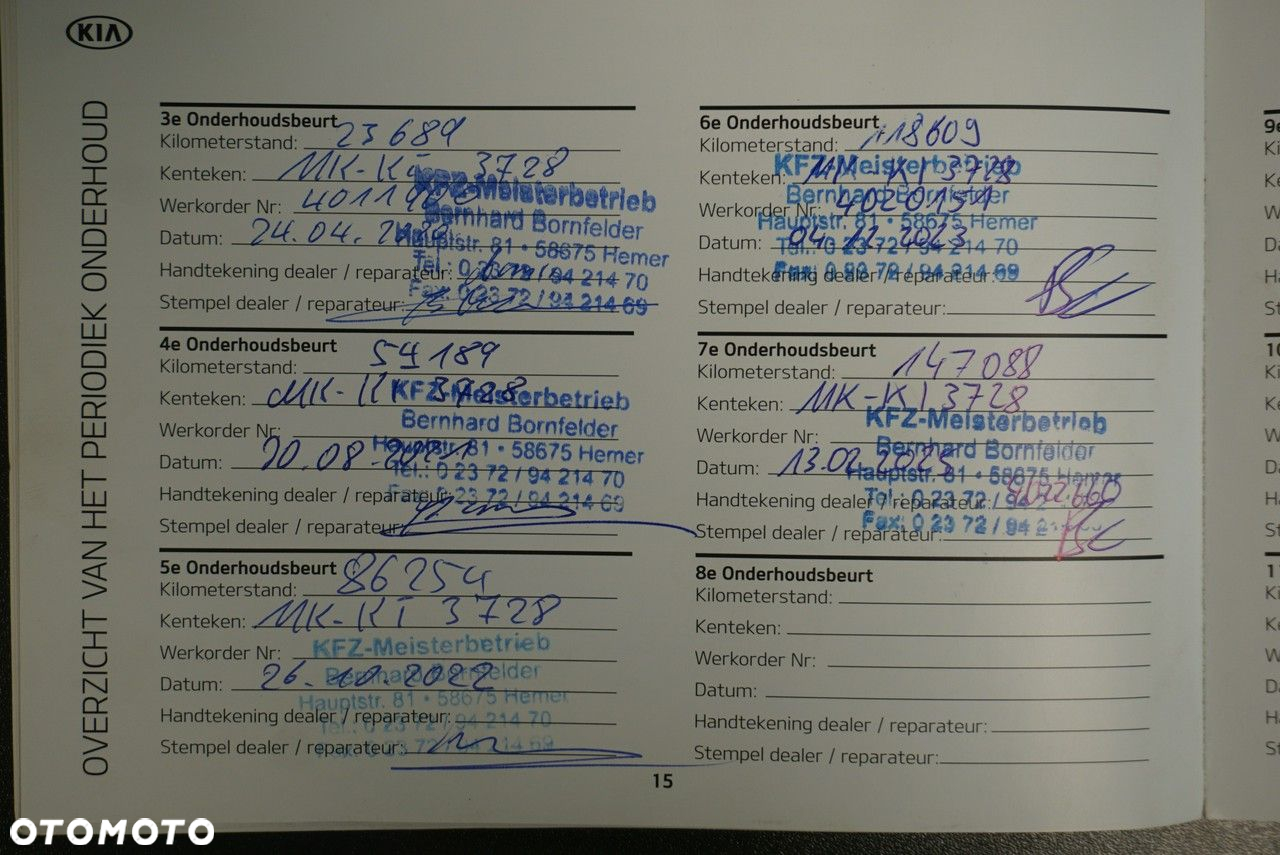 KIA
OVERZICHT VAN HET PERIODIEK ONDERHOUD
3e Onderhoudsbeurt
Kilometerstand: 23 689
Kenteken: MK-KI 3728
Werkorder Nr:
Datum: 24.04.
Handtekening dealer / reparateur:
Stempel dealer / reparateur:
KFZ-Meisterbetrieb
Bernhard Bornfelder
Hauptstr. 81 • 58675 Hemer
Tel.: 0 23 72 / 94 214 70
Fax: 0 23 72 / 94 214 69
4e Onderhoudsbeurt
Kilometerstand: 54 189
Kenteken: MK-KI 3728
Werkorder Nr:
Datum:
Handtekening dealer / reparateur:
Stempel dealer / reparateur:
KFZ-Meisterbetrieb
Bernhard Bornfelder
Hauptstr. 81 • 58675 Hemer
Tel.: 0 23 72 / 94 214 70
Fax: 0 23 72 / 94 214 69
5e Onderhoudsbeurt
Kilometerstand: 86254
Kenteken: MK-KI 3728
Werkorder Nr:
Datum: 26.10.2022
Handtekening dealer / reparateur:
Stempel dealer / reparateur:
KFZ-Meisterbetrieb
Bernhard Bornfelder
Hauptstr. 81 • 58675 Hemer
Tel.: 0 23 72 / 94 214 70
Fax: 0 23 72 / 94 214 69
6e Onderhoudsbeurt
Kilometerstand: 118609
Kenteken: MK-KI 3728
Werkorder Nr:
Datum:
Handtekening dealer / reparateur:
Stempel dealer / reparateur:
KFZ-Meisterbetrieb
Bernhard Bornfelder
Hauptstr. 81 • 58675 Hemer
Tel.: 0 23 72 / 94 214 70
Fax: 0 23 72 / 94 214 69
7e Onderhoudsbeurt
Kilometerstand: 147088
Kenteken: MK-KI 3728
Werkorder Nr:
Datum: 13.02.2025
Handtekening dealer / reparateur:
Stempel dealer / reparateur:
KFZ-Meisterbetrieb
Bernhard Bornfelder
Hauptstr. 81 • 58675 Hemer
Tel.: 0 23 72 / 94 2
Fax: 0 23 72 / 94 2
8e Onderhoudsbeurt
Kilometerstand:
Kenteken:
Werkorder Nr:
Datum:
Handtekening dealer / reparateur:
Stempel dealer / reparateur:
15
OTOMOTO